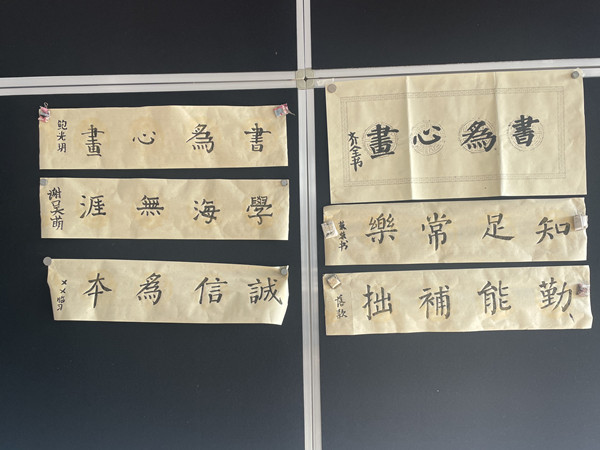 書為心畫
鲍光玥
學海無涯
謝昊萌
誠信為本
××临习
書為心畫
齐全书
知足常樂
书
勤能補拙
落款